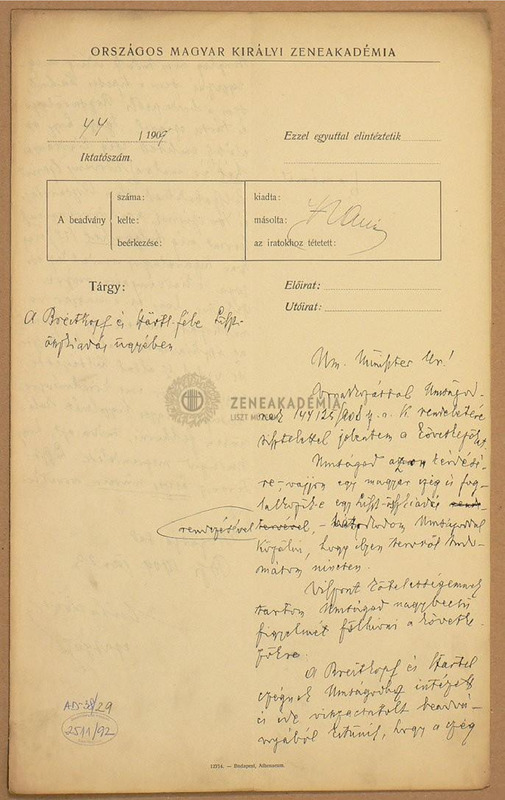 ORSZÁGOS MAGYAR KIRÁLYI ZENEAKADÉMIA
44 / 1907
Iktatószám.
Ezzel egyuttal elintéztetik
A beadvány
száma:
kelte:
beérkezése:
kiadta:
másolta:
az iratokhoz tétetett:
Tárgy:
Előirat:
Utóirat:
A Breitkopf és Härtl-féle Liszt-
összkiadás ügyében
Nm. Minister Ur!
Vonatkozással Nmtságod-
nak 144125/906 sz. a. k. rendeletére
tisztelettel jelentem a következőket
Nmtságod azon kérdésé-
re - vajjon egy magyar czég is fog-
lalkozik-e egy Liszt-összkiadás
rendezésével tervével, - tudom Nmtságoddal
közölni, hogy ilyen tervről tudo-
másom nincsen.
Viszont kötelességemnek
tartom Nmtságod nagybecsű
figyelmét fölhívni a követke-
zőkre.
A Breitkopf és Härtel
czégnek Nmtságodhoz intézett
és ide visszacsatolt beadvá-
nyából kitűnik, hogy a czég
ZENEAKADÉMIA
LISZT MÚZEUM
AD-38/29
2511/92
12714. — Budapest, Athenaeum.